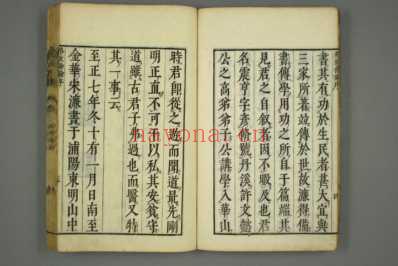 書其有功於生民者甚大宜與
三家所著竝傳於世故濂得備
書傳學用功之所自于篇端其
見君之自叙者因不暇及也君
名震亨字彥脩號丹溪許文懿
公之高弟弟子公講學入華山
時君即從之遊而聞道最先剛
明正直不可干以私其安貧守
道雖古君子不過也而醫又特
其一事云
至正七年冬十有一月日南至
金華宋濂書于浦陽東明山中